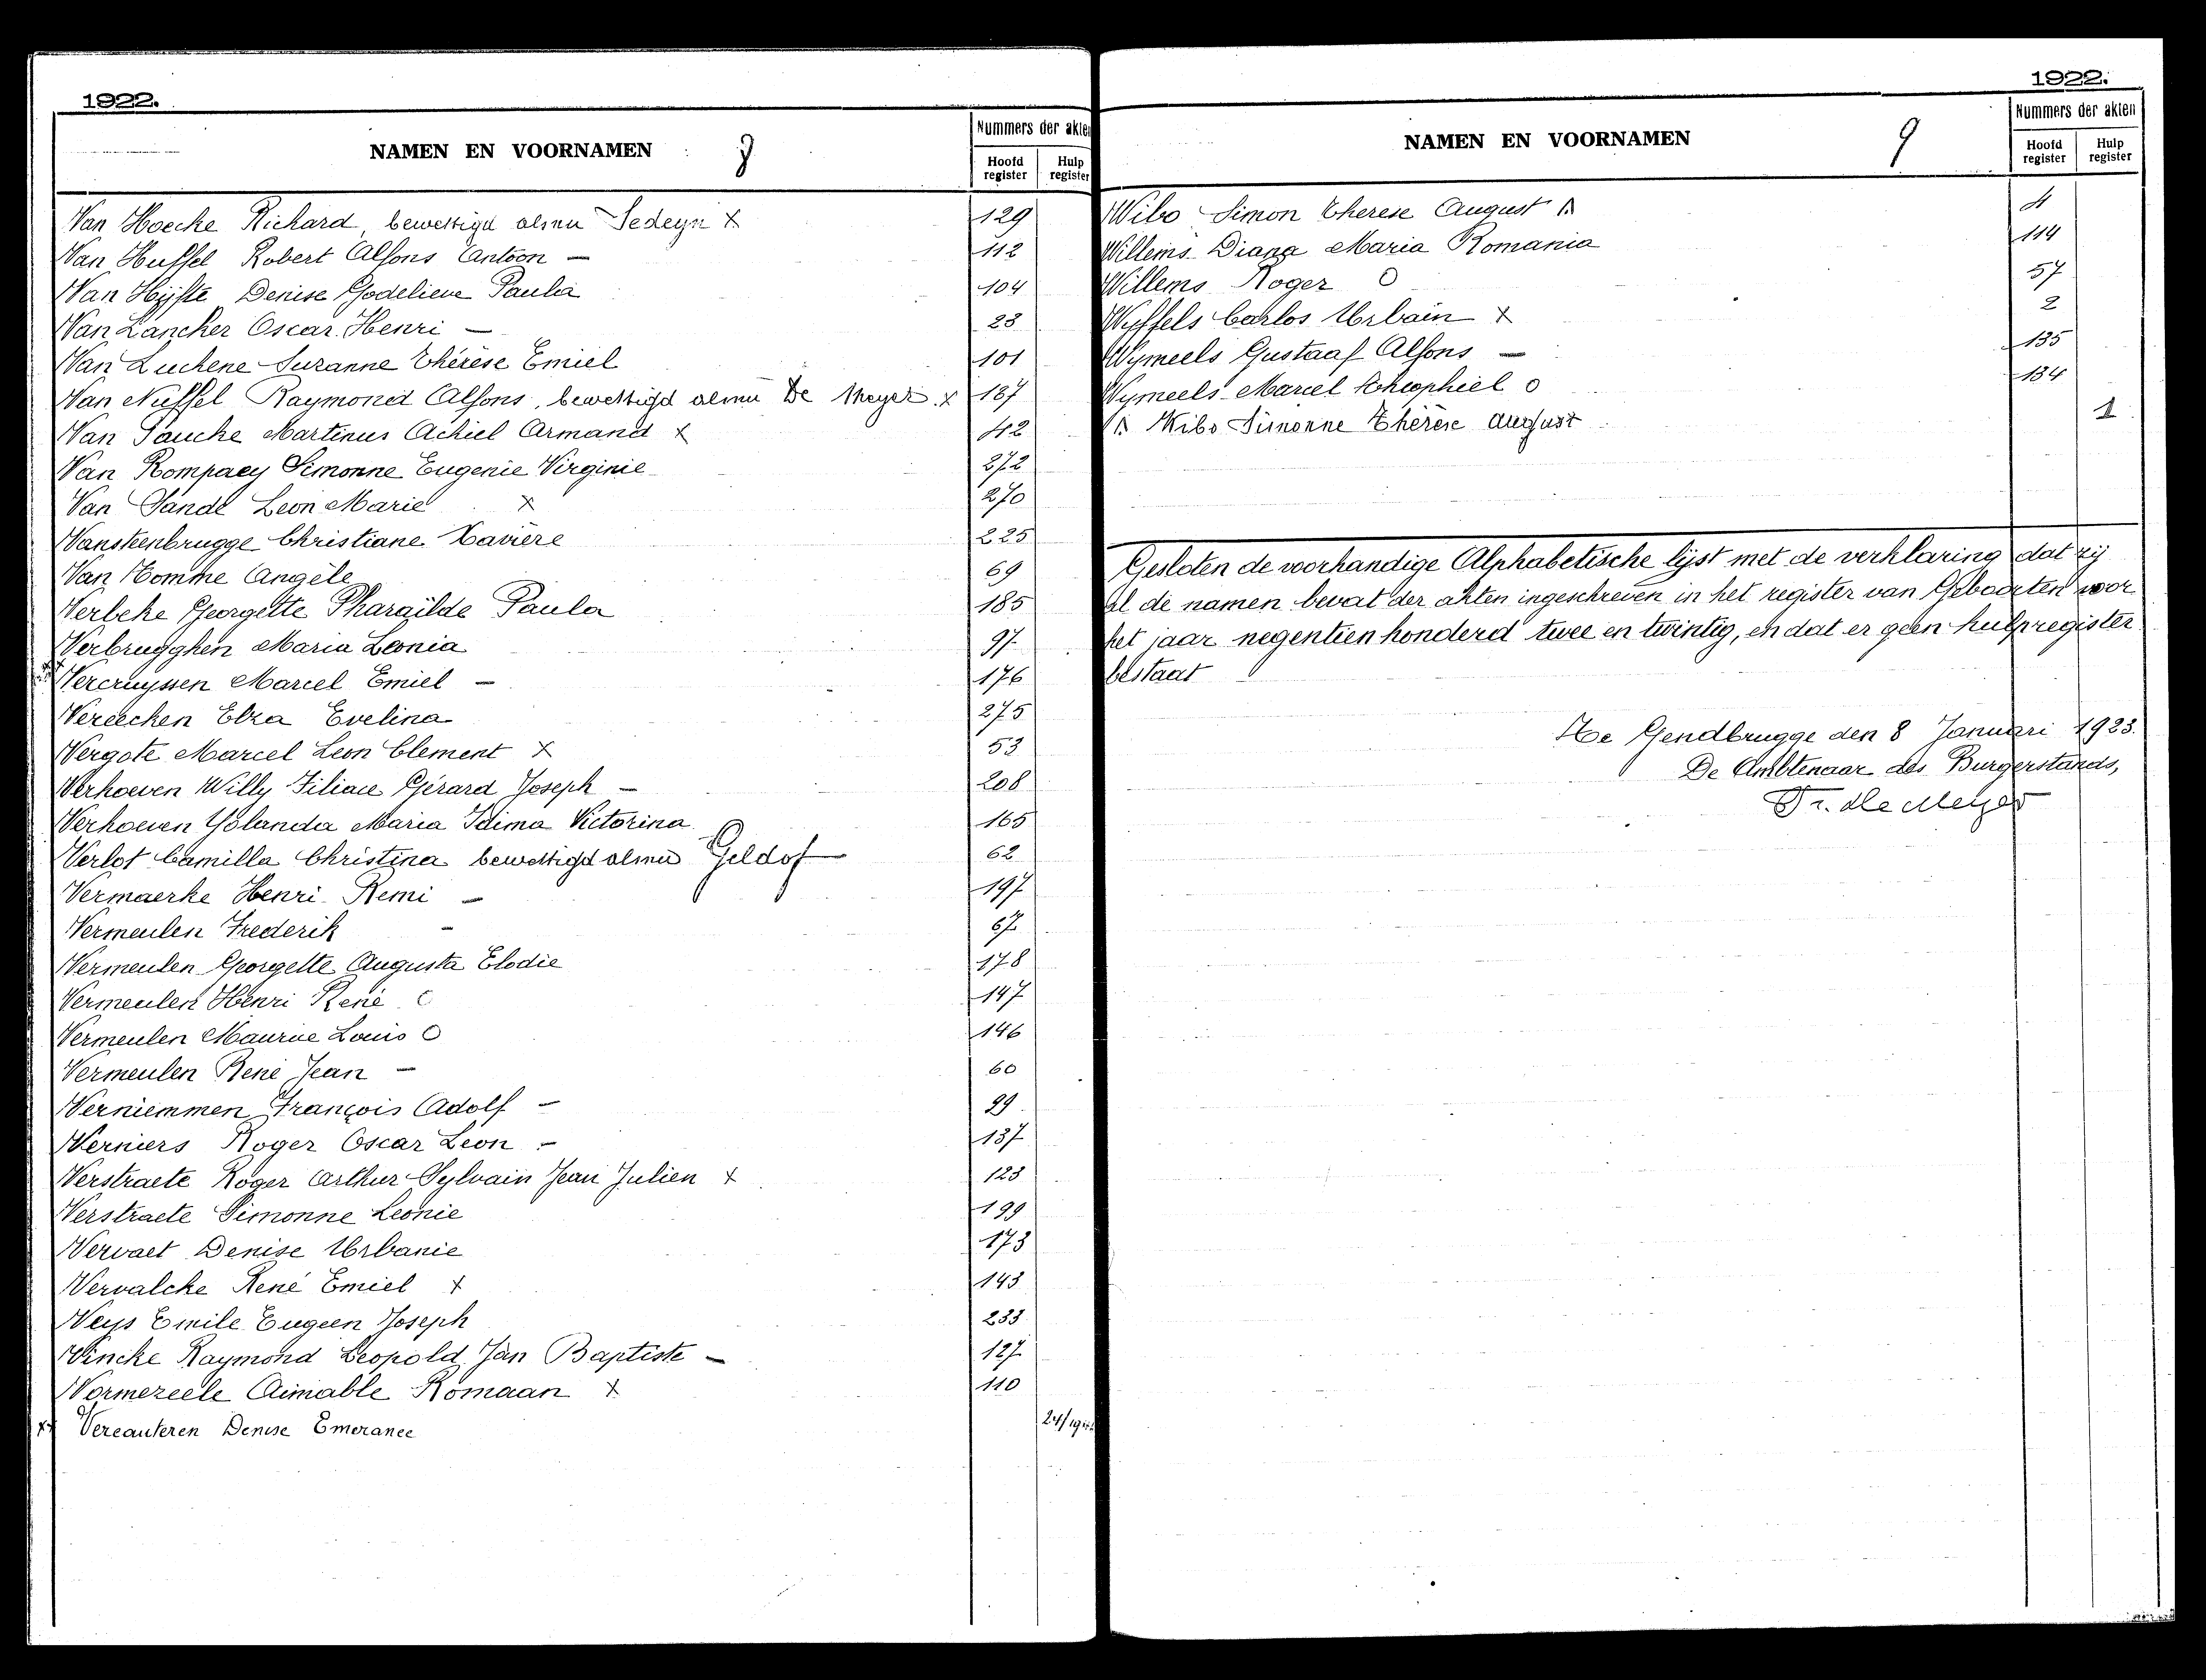 1922.
NAMEN EN VOORNAMEN 8
Nummers der akten
Hoofd register Hulp register
Van Hoecke Richard, bewettigd alsnu Sedeyn x 129
Van Huffel Robert Alfons Antoon — 112
Van Hyfte Denise Godelieve Paula 104
Van Lancker Oscar Henri — 23
Van Luchene Suzanne Thérèse Emiel 101
Van Nuffel Raymond Alfons, bewettigd alsnu De Meyer x 167
Van Paucke Martinus Achiel Armand x 42
Van Rompaey Simonne Eugenie Virginie 272
Van Sande Leon Marie x 270
Vansteenbrugge Christiane Xavière 225
Van Tomme Angèle 69
Verbeke Georgette Pharaïlde Paula 185
Verbrugghen Maria Leonia 97
Vercruyssen Marcel Emiel — 176
Vereecken Elza Evelina 275
Vergote Marcel Leon Clement x 53
Verhoeven Willy Filiace Gérard Joseph — 208
Verhoeven Yolanda Maria Idima Victorina 165
Verlot Camilla Christina bewettigd alsnu Geldof 62
Vermaerke Henri Remi — 197
Vermeulen Frederik — 67
Vermeulen Georgette Augusta Elodie 178
Vermeulen Henri René O 147
Vermeulen Maurice Louis O 146
Vermeulen René Jean — 60
Verniemmen François Adolf — 29
Verniers Roger Oscar Leon — 137
Verstraete Roger Arthur Sylvain Jean Julien x 123
Verstraete Simonne Leonie 199
Vervaet Denise Urbanie 173
Vervalcke René Emiel x 143
Veys Emile Eugeen Joseph 233
Vincke Raymond Leopold Jan Baptiste — 127
Vormezeele Aimable Romaan x 110
Vercauteren Denise Emerance 24/19
1922.
NAMEN EN VOORNAMEN 9
Nummers der akten
Hoofd register Hulp register
Wibo Simon Therese August 4
Willems Diana Maria Romania 114
Willems Roger O 57
Wyffels Carlos Urbain x 2
Wymeels Gustaaf Alfons — 135
Wymeels Marcel Theophiel o 134
Wibo Simonne Thérèse August 1
Gesloten de voorhandige Alphabetische lijst met de verklaring dat zij
al de namen bevat der akten ingeschreven in het register van Geboorten voor
het jaar negentien honderd twee en twintig, en dat er geen hulpregister
bestaat
Te Gendbrugge den 8 Januari 1923.
De Ambtenaar des Burgerstands,
Fr. de Meyer